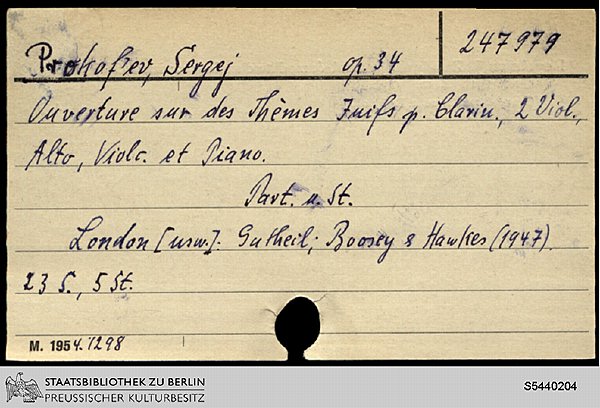 Prokofiev, Sergej op. 34 247979
Ouverture sur des Thèmes Juifs p. Clarin., 2 Viol.,
Alto, Violc. et Piano.
Part. u. St.
London [usw.]: Gutheil; Boosey & Hawkes (1947).
23 S., 5 St.
M. 1954.1298
STAATSBIBLIOTHEK ZU BERLIN
PREUSSISCHER KULTURBESITZ
S5440204